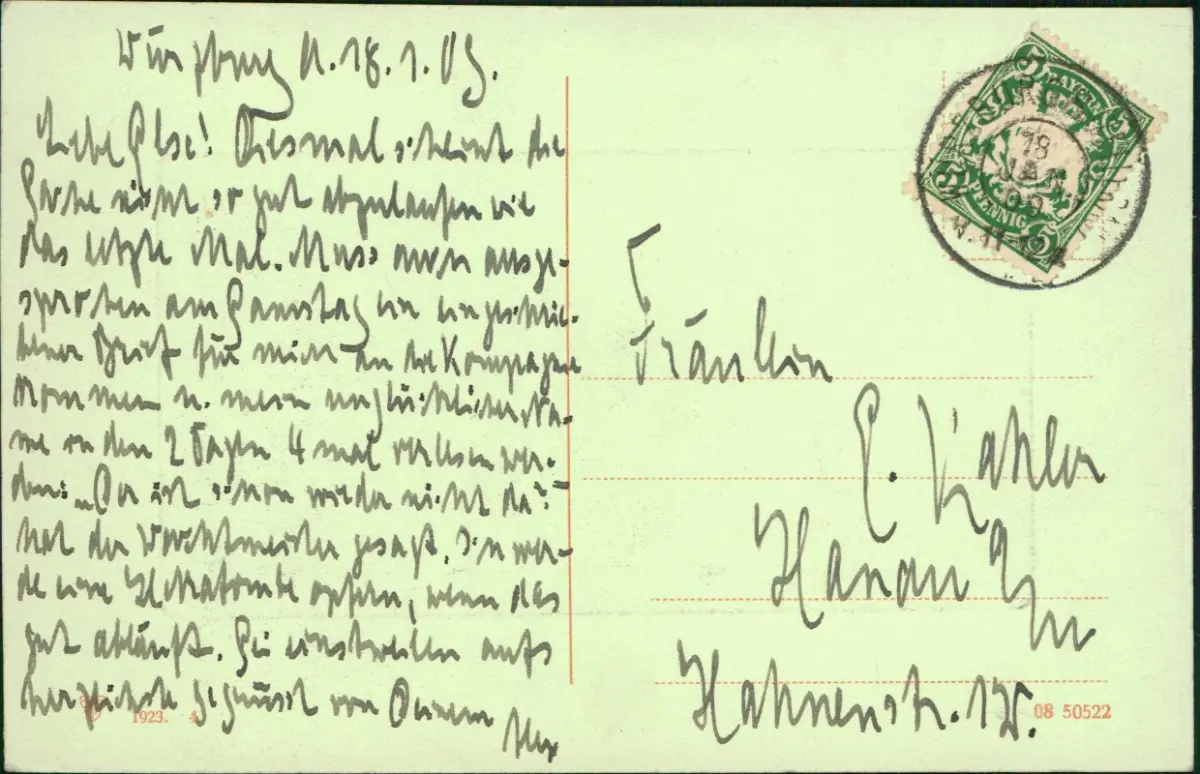 Würzburg d. 18.1.09.
Liebe Else! Diesmal scheint die
Sache nicht so gut abzulaufen wie
das letzte Mal. Muss auch ausge-
sprochen am Samstag ein eingeschrie-
bener Brief für mich an die Kompagnie
kommen u. mein unglücklicher Na-
me in den 2 Tagen 4 mal verlesen wer-
den: „Der ist schon wieder nicht da?"
hat der Wachtmeister gesagt. Ich wer-
de eine Hekatombe opfern, wenn das
gut abläuft. Sei einstweilen aufs
herzlichste gegrüsst von Deinem
1923. 4
Fräulein
E. Kahler
Hanau a/m
Hahnenstr. 1
08 50522
5 BAYERN 5
5 PFENNIG 5
WÜRZBURG
18
JAN
09
N. 11-12